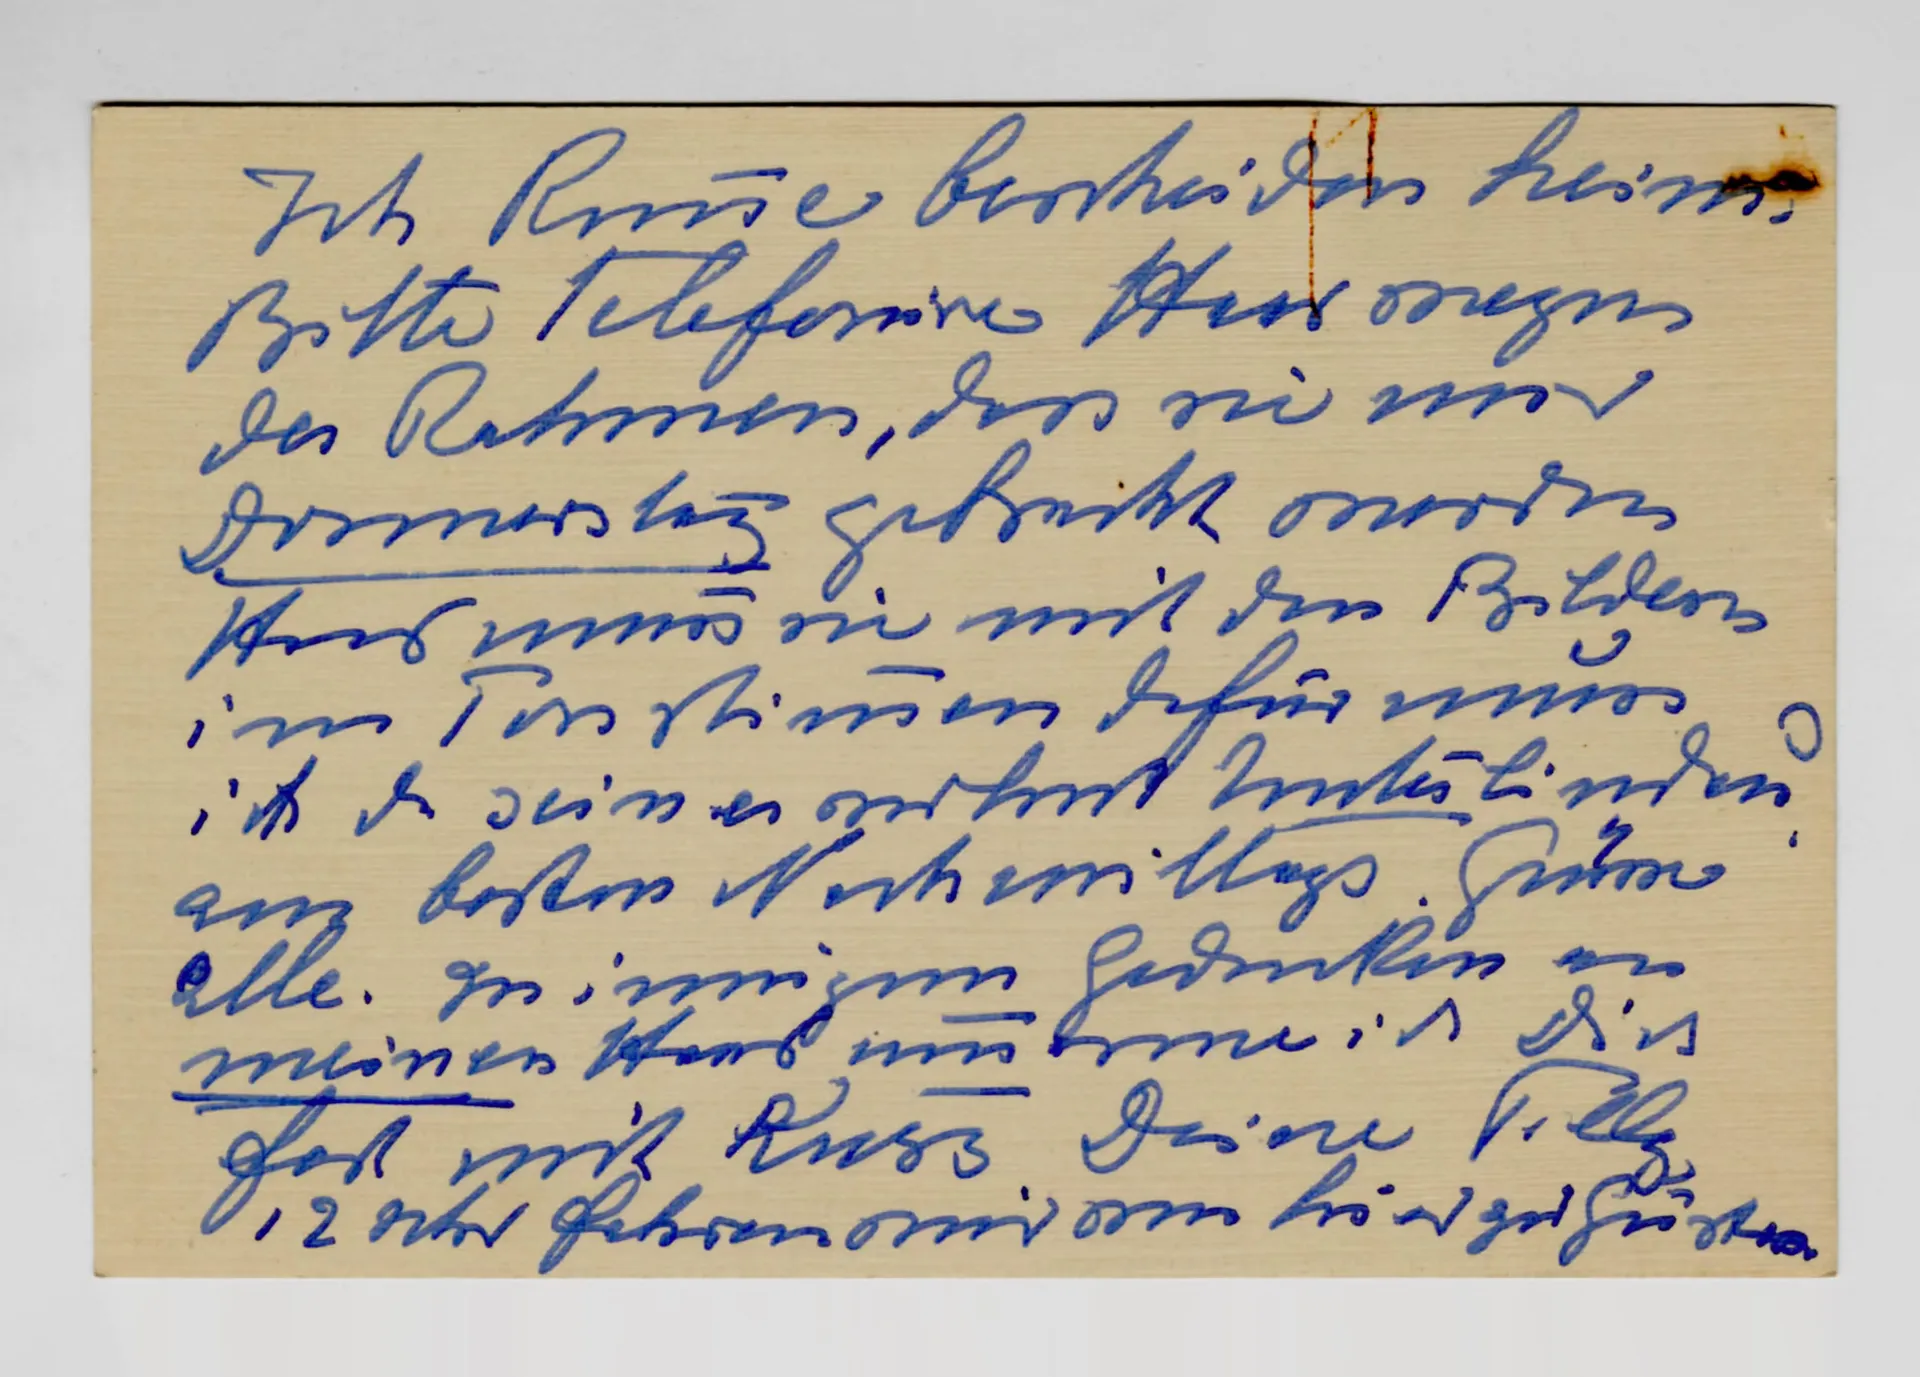 Ich komme bescheiden heim.
Bitte Telefoniere Haas wegen
der Rahmen, dass sie mir
Donnerstag gebracht werden
Haas muss sie mit den Bildern
im Ton stimmen dafür muss
ich da sein er wohnt Unter Linden
am besten Nachmittags. Grüsse
alle. In innigem Gedenken an
meinen umarme ich Dich
fest mit Kuss Deine Tilly
12 Uhr fahren wir von hier